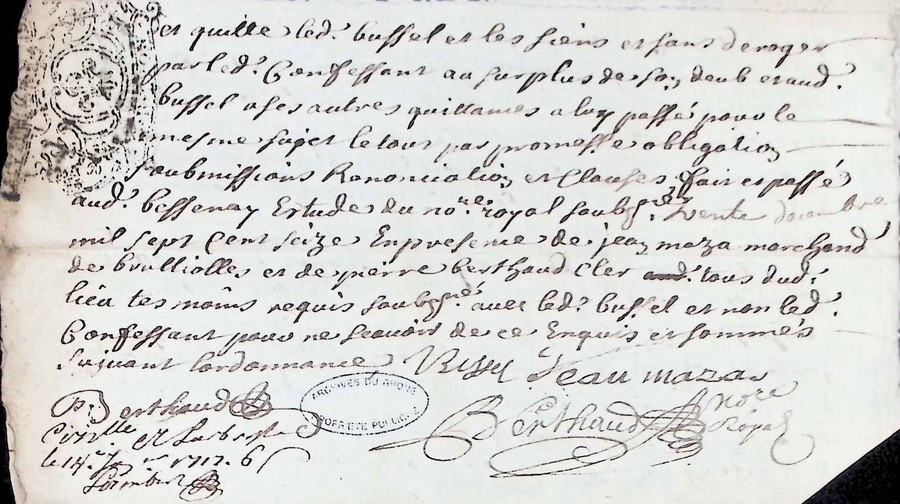 et quitte led.t bussel et les siens et sans deroger
par led.t Confessant au surplus de son deub et aud.t
bussel a ses autres quittances a luy passé pour le
mesme sujet le tout par promesse obligation
soubmissions Renonciation et clauses fait et passé
aud.t bessenay Estude du no.re royal soub.né vente decembre
mil sept Cent seize En presence de jean maza marchand
de brulliolles et de pierre berthaud Cler tous dud.t
lieu tesmoins requis soub.nés avec led.t bussel et non led.t
Confessant pour ne scavoir de ce Enquis et sommés
suivant l'ordonnance Jean maza
P. Berthaud
ARCHIVES DU RHONE
PROPRIÉTÉ PUBLIQUE
Berthaud no.re
Royal
le 14.e 1717